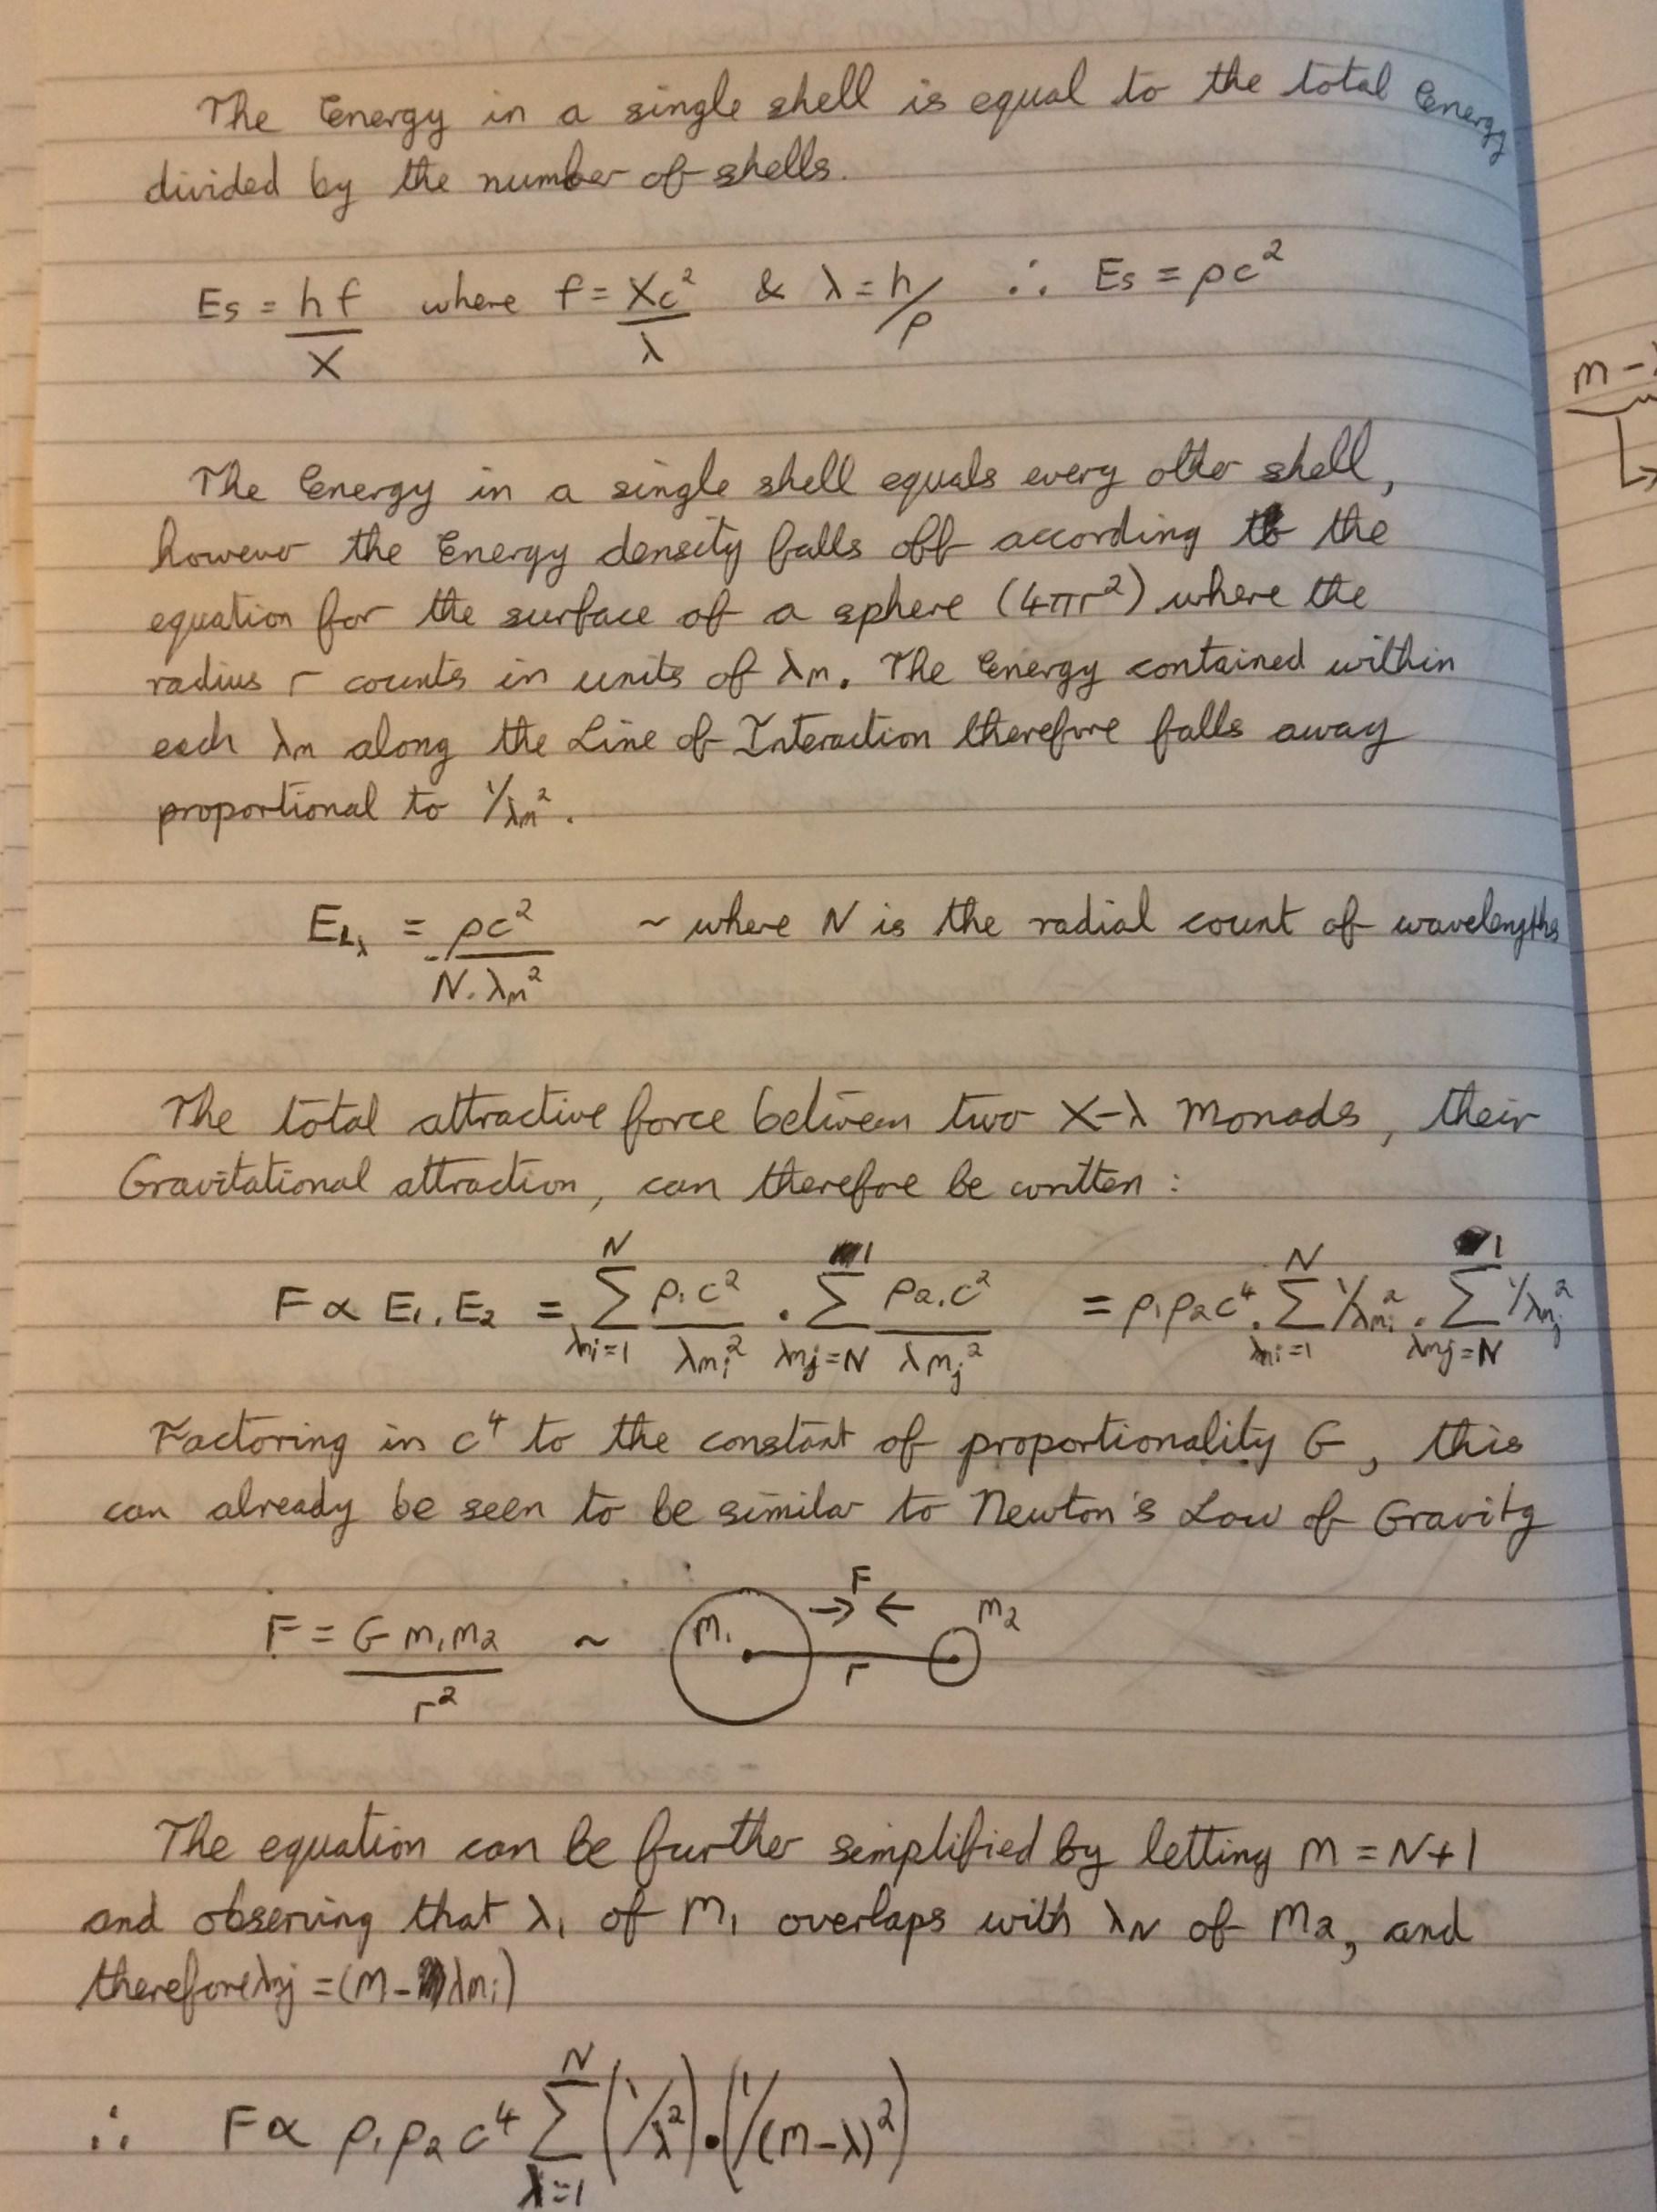 The Energy in a single shell is equal to the total Energy
divided by the number of shells.
Es = hf/X where f = Xc²/λ & λ = h/ρ ∴ Es = ρc²
m -
The Energy in a single shell equals every other shell,
however the Energy density falls off according to the
equation for the surface of a sphere (4πr²) where the
radius r counts in units of λm. The Energy contained within
each λm along the Line of Interaction therefore falls away
proportional to 1/λm².
ELλ = ρc²/N.λm² ~ where N is the radial count of wavelengths
The total attractive force between two X-λ Monads, their
Gravitational attraction, can therefore be written :
F ∝ E1.E2 = N∑λmi=1 ρ1c²/λmi² . 1∑λmj=N ρ2.c²/λmj² = ρ1ρ2c⁴. N∑λmi=1 1/λmi² . 1∑λmj=N 1/λmj²
Factoring in c⁴ to the constant of proportionality G, this
can already be seen to be similar to Newton's Law of Gravity
F = G m1m2/r² ~ m1 r F m2
The equation can be further simplified by letting M = N+1
and observing that λ1 of M1 overlaps with λN of M2, and
therefore λmj = (M - λmi)
∴ F ∝ ρ1ρ2c⁴ N∑λ=1 (1/λ²).(1/(M-λ)²)